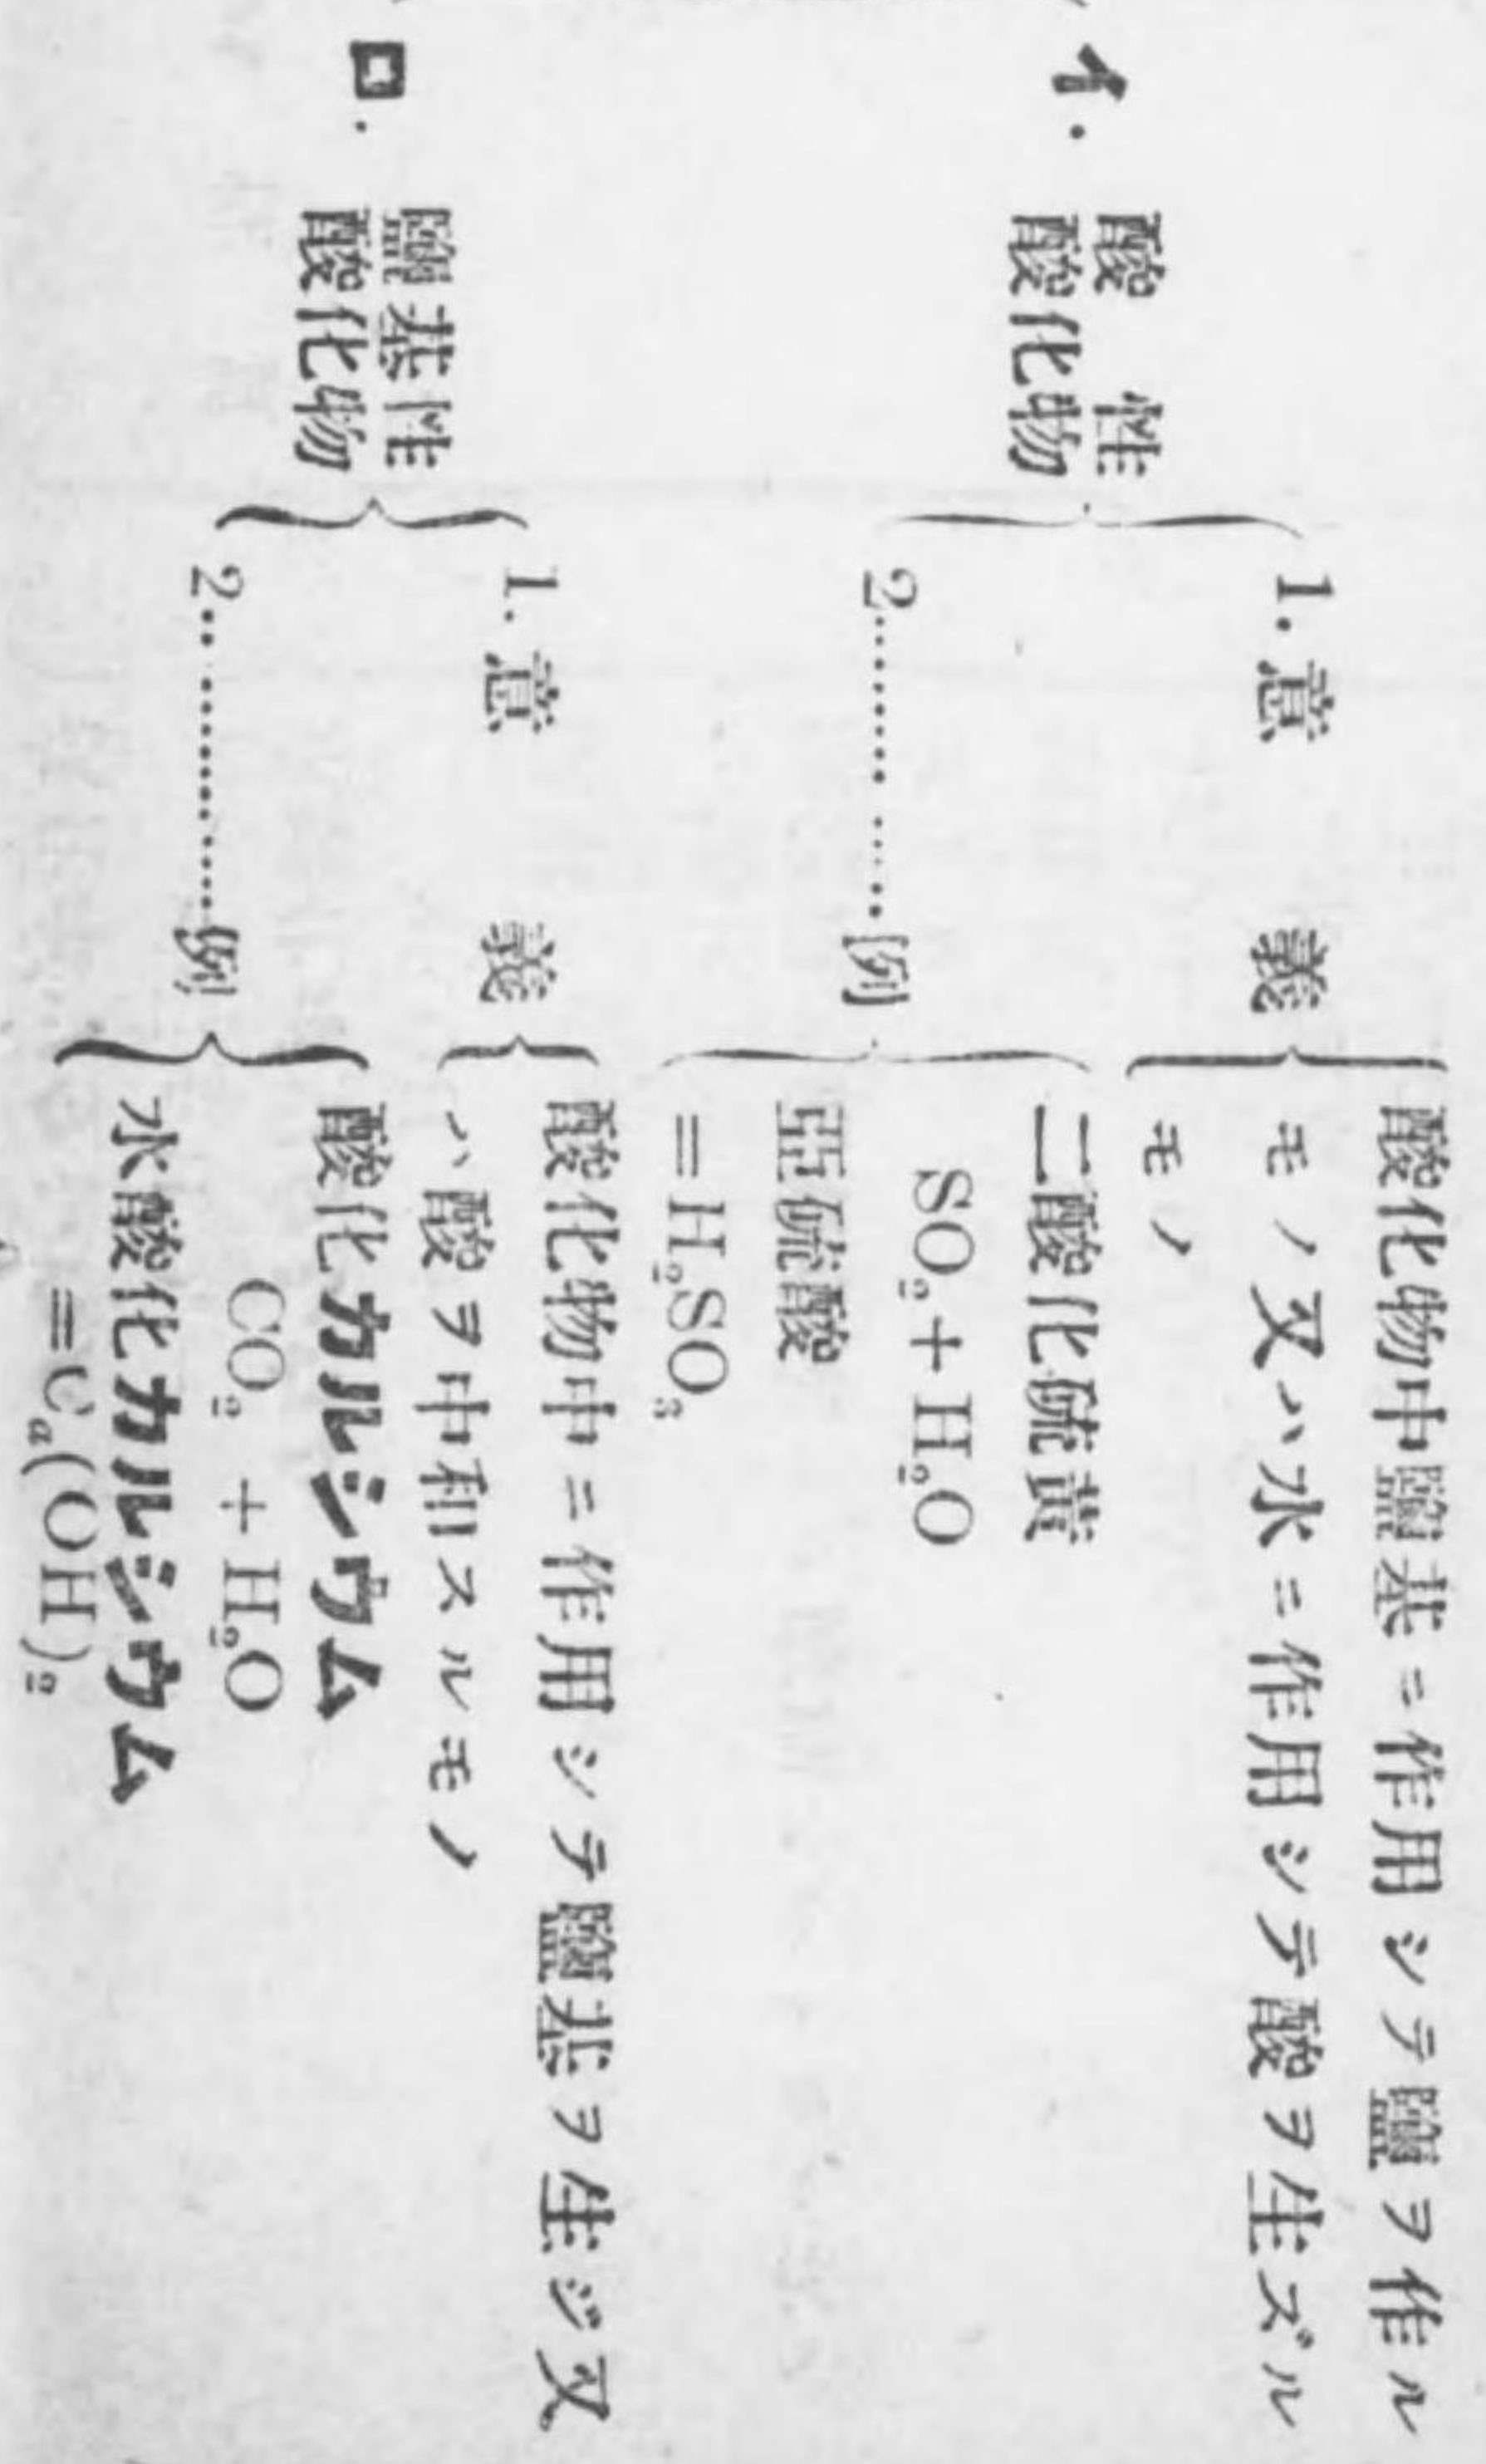 イ. 酸性
酸化物
1. 意義
酸化物中鹽基ニ作用シテ鹽ヲ作ル
モノ又ハ水ニ作用シテ酸ヲ生ズル
モノ
2.………例
二酸化硫黄
SO₂+H₂O
亞硫酸
=H₂SO₃
ロ. 鹽基性
酸化物
1. 意義
酸化物中ニ作用シテ鹽基ヲ生ジ又
ハ酸ヲ中和スルモノ
2.………例
酸化カルシウム
CO₂+H₂O
水酸化カルシウム
=Ca(OH)₂